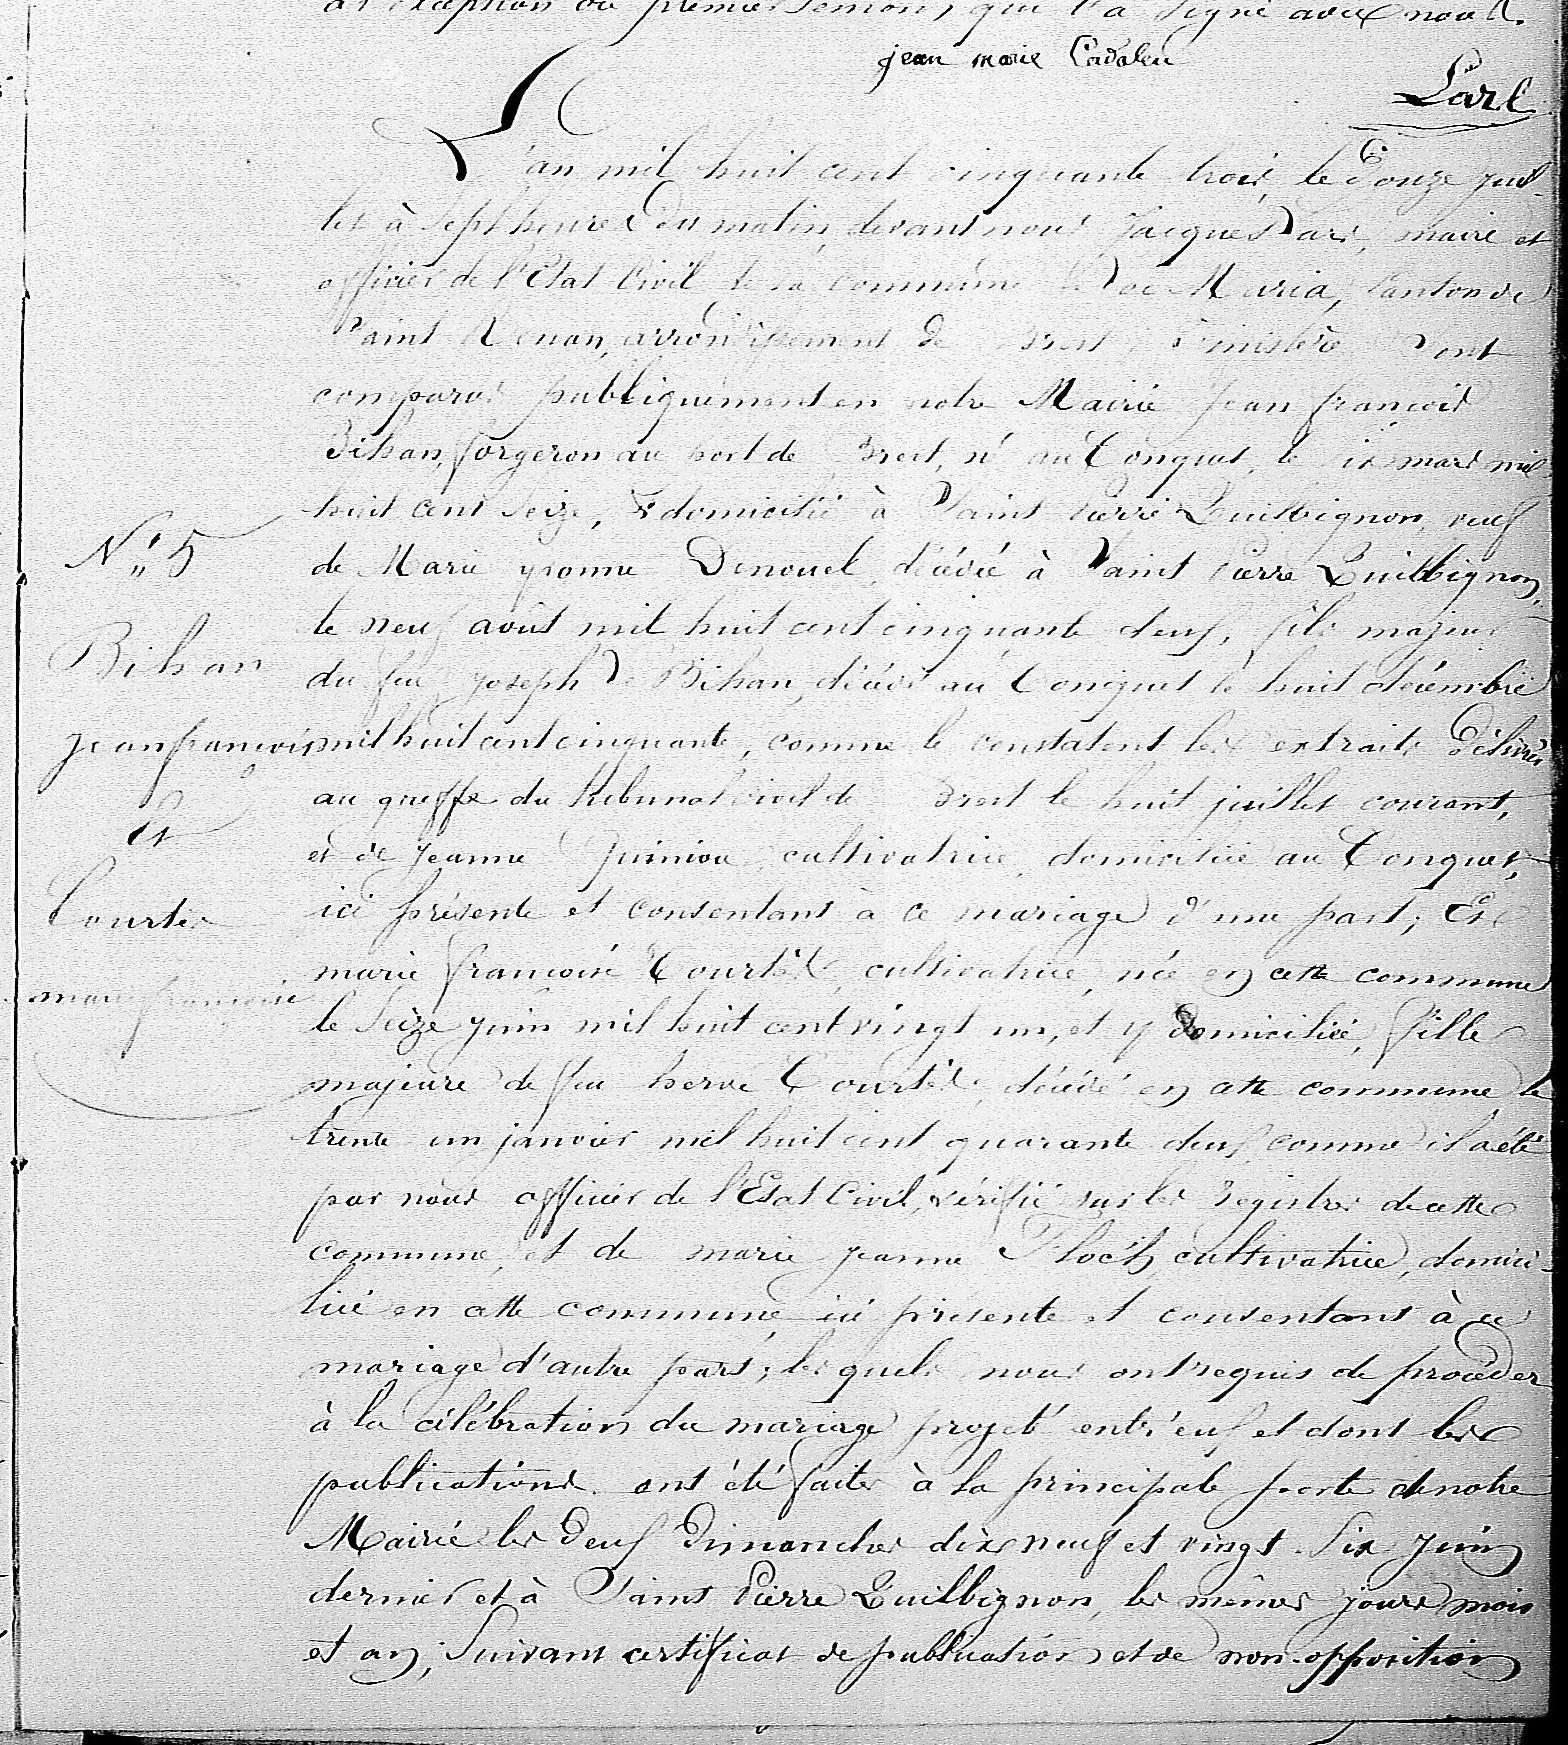 à l'exception du premier témoin, qui l'a signé avec nous.
jean marie
L'an mil huit cent cinquante trois, le douze juil-
let à Sept heures du matin, devant nous Jacques, maire et
officier de l'Etat Civil de la commune de Loc Maria, Canton de
Saint Renan, arrondissement de Brest Finistère Sont
comparus publiquement en notre Mairie Jean françois
Bihan, forgeron au port de Brest, né au Conquet, le mars mil
huit cent Seize, & domicilié à Saint Pierre Quilbignon, veuf
N° 5
de Marie yvonne Denouel, décédée à Saint Pierre Quilbignon,
le neuf août mil huit cent cinquante deux, fils majeur
Bihan
du feu Joseph Bihan, décédé au Conquet le huit décembre
Jean françois
mil huit cent cinquante, comme le constatent les extraits délivrés
au greffe du tribunal civil de Brest le huit juillet courant,
et
et de Jeanne Quiniou cultivatrice domiciliée au Conquet,
Courtès
ici présente et consentant à ce mariage d'une part; Et
marie françoise
marie françoise Courtès, cultivatrice, née en cette commune
le Seize juin mil huit cent vingt un, et y domiciliée, fille
majeure de feu herve Courtès, décédé en cette commune le
trente un janvier mil huit cent quarante deux, comme il a été
par nous officier de l'Etat Civil, vérifié sur les registres de cette
commune, et de marie jeanne Floc'h cultivatrice, domici-
liée en cette commune, ici présente et consentant à ce
mariage d'autre part; les quels nous ont requis de procéder
à la célébration du mariage projeté entr'eux et dont les
publications ont été faites à la principale porte de notre
Mairie les deux Dimanches dix neuf et vingt Six juin
dernier et à Saint Pierre Quilbignon, les mêmes jours mois
et an, Suivant certificat de publication et de non-opposition